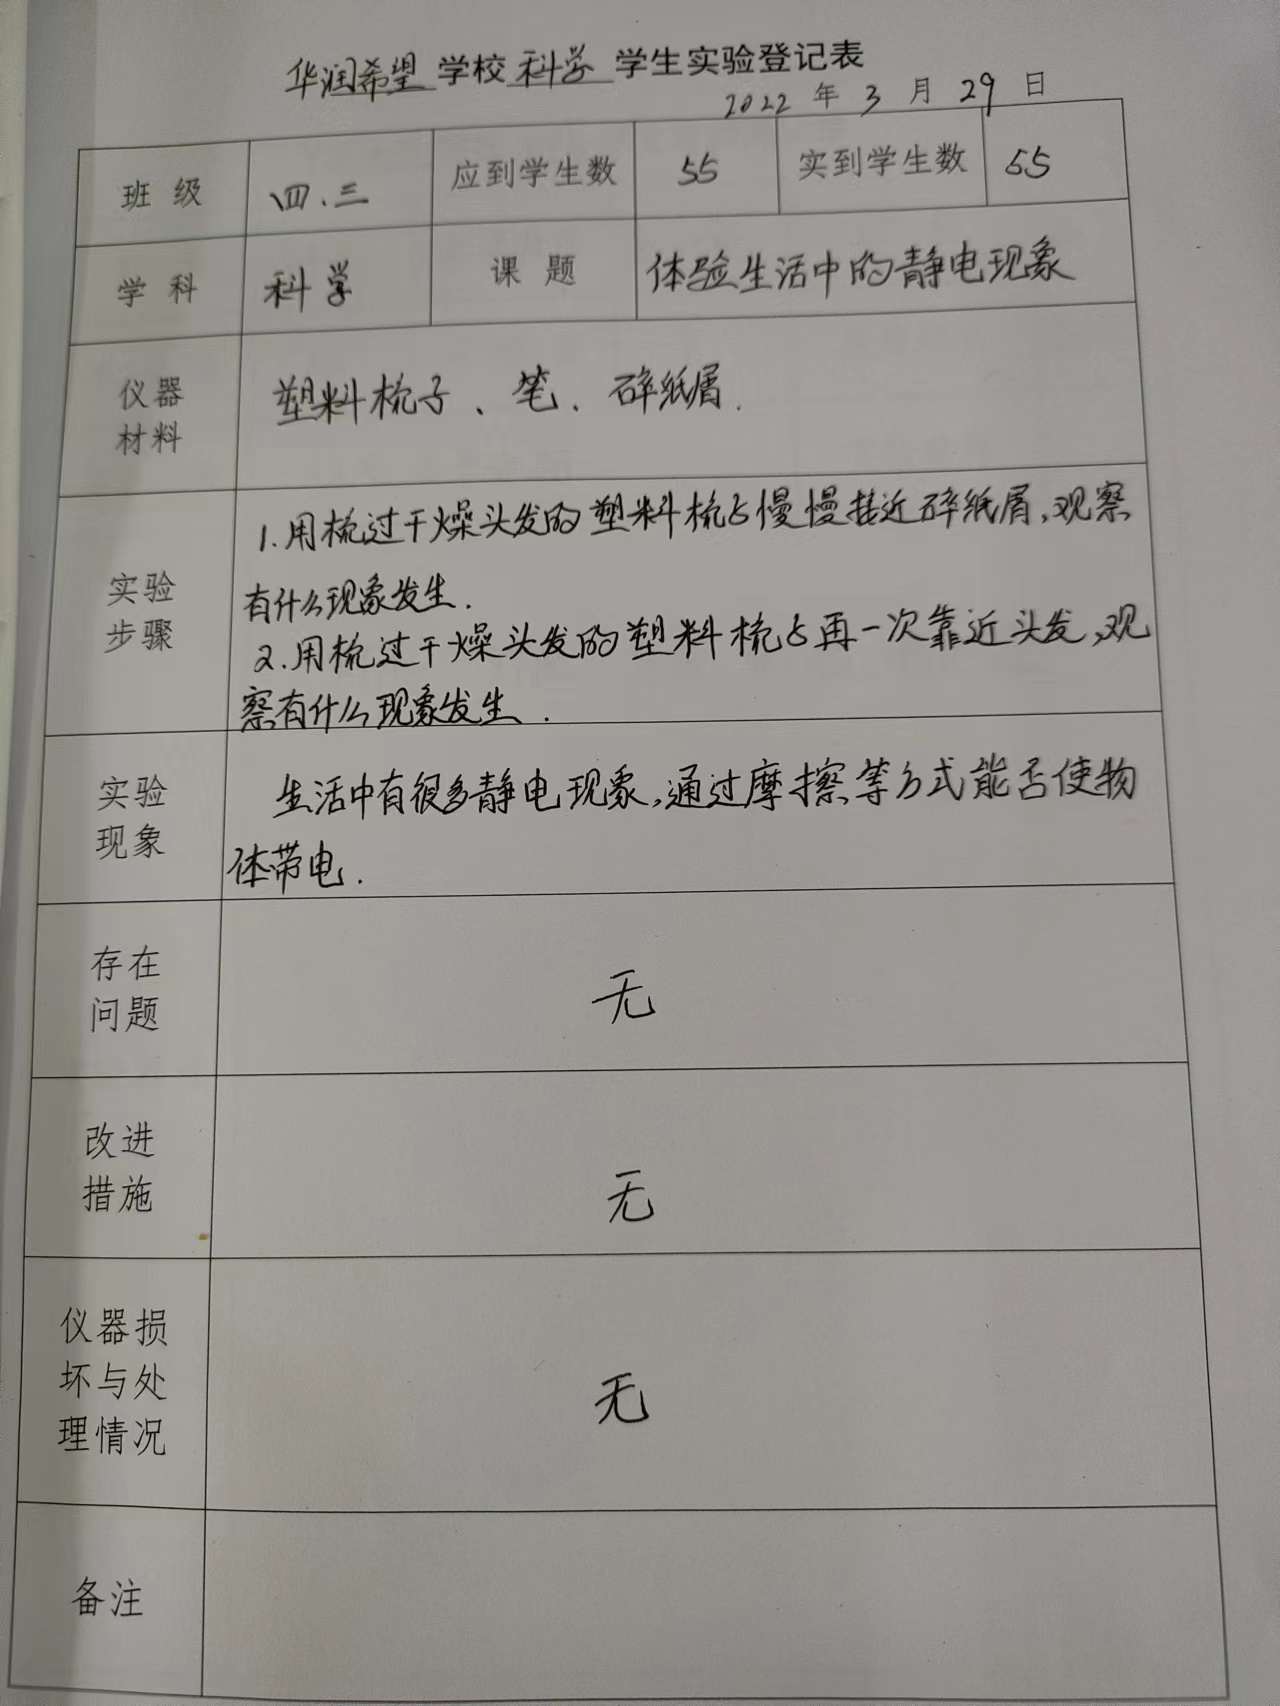 华润希望学校科学学生实验登记表
2022年3月29日
班级 四.三 应到学生数 55 实到学生数 55
学科 科学 课题 体验生活中的静电现象
仪器
材料
塑料梳子、笔、碎纸屑.
实验
步骤
1.用梳过干燥头发的塑料梳子慢慢接近碎纸屑,观察
有什么现象发生.
2.用梳过干燥头发的塑料梳子再一次靠近头发,观
察有什么现象发生.
实验
现象
生活中有很多静电现象,通过摩擦等方式能否使物
体带电.
存在
问题
无
改进
措施
无
仪器损
坏与处
理情况
无
备注